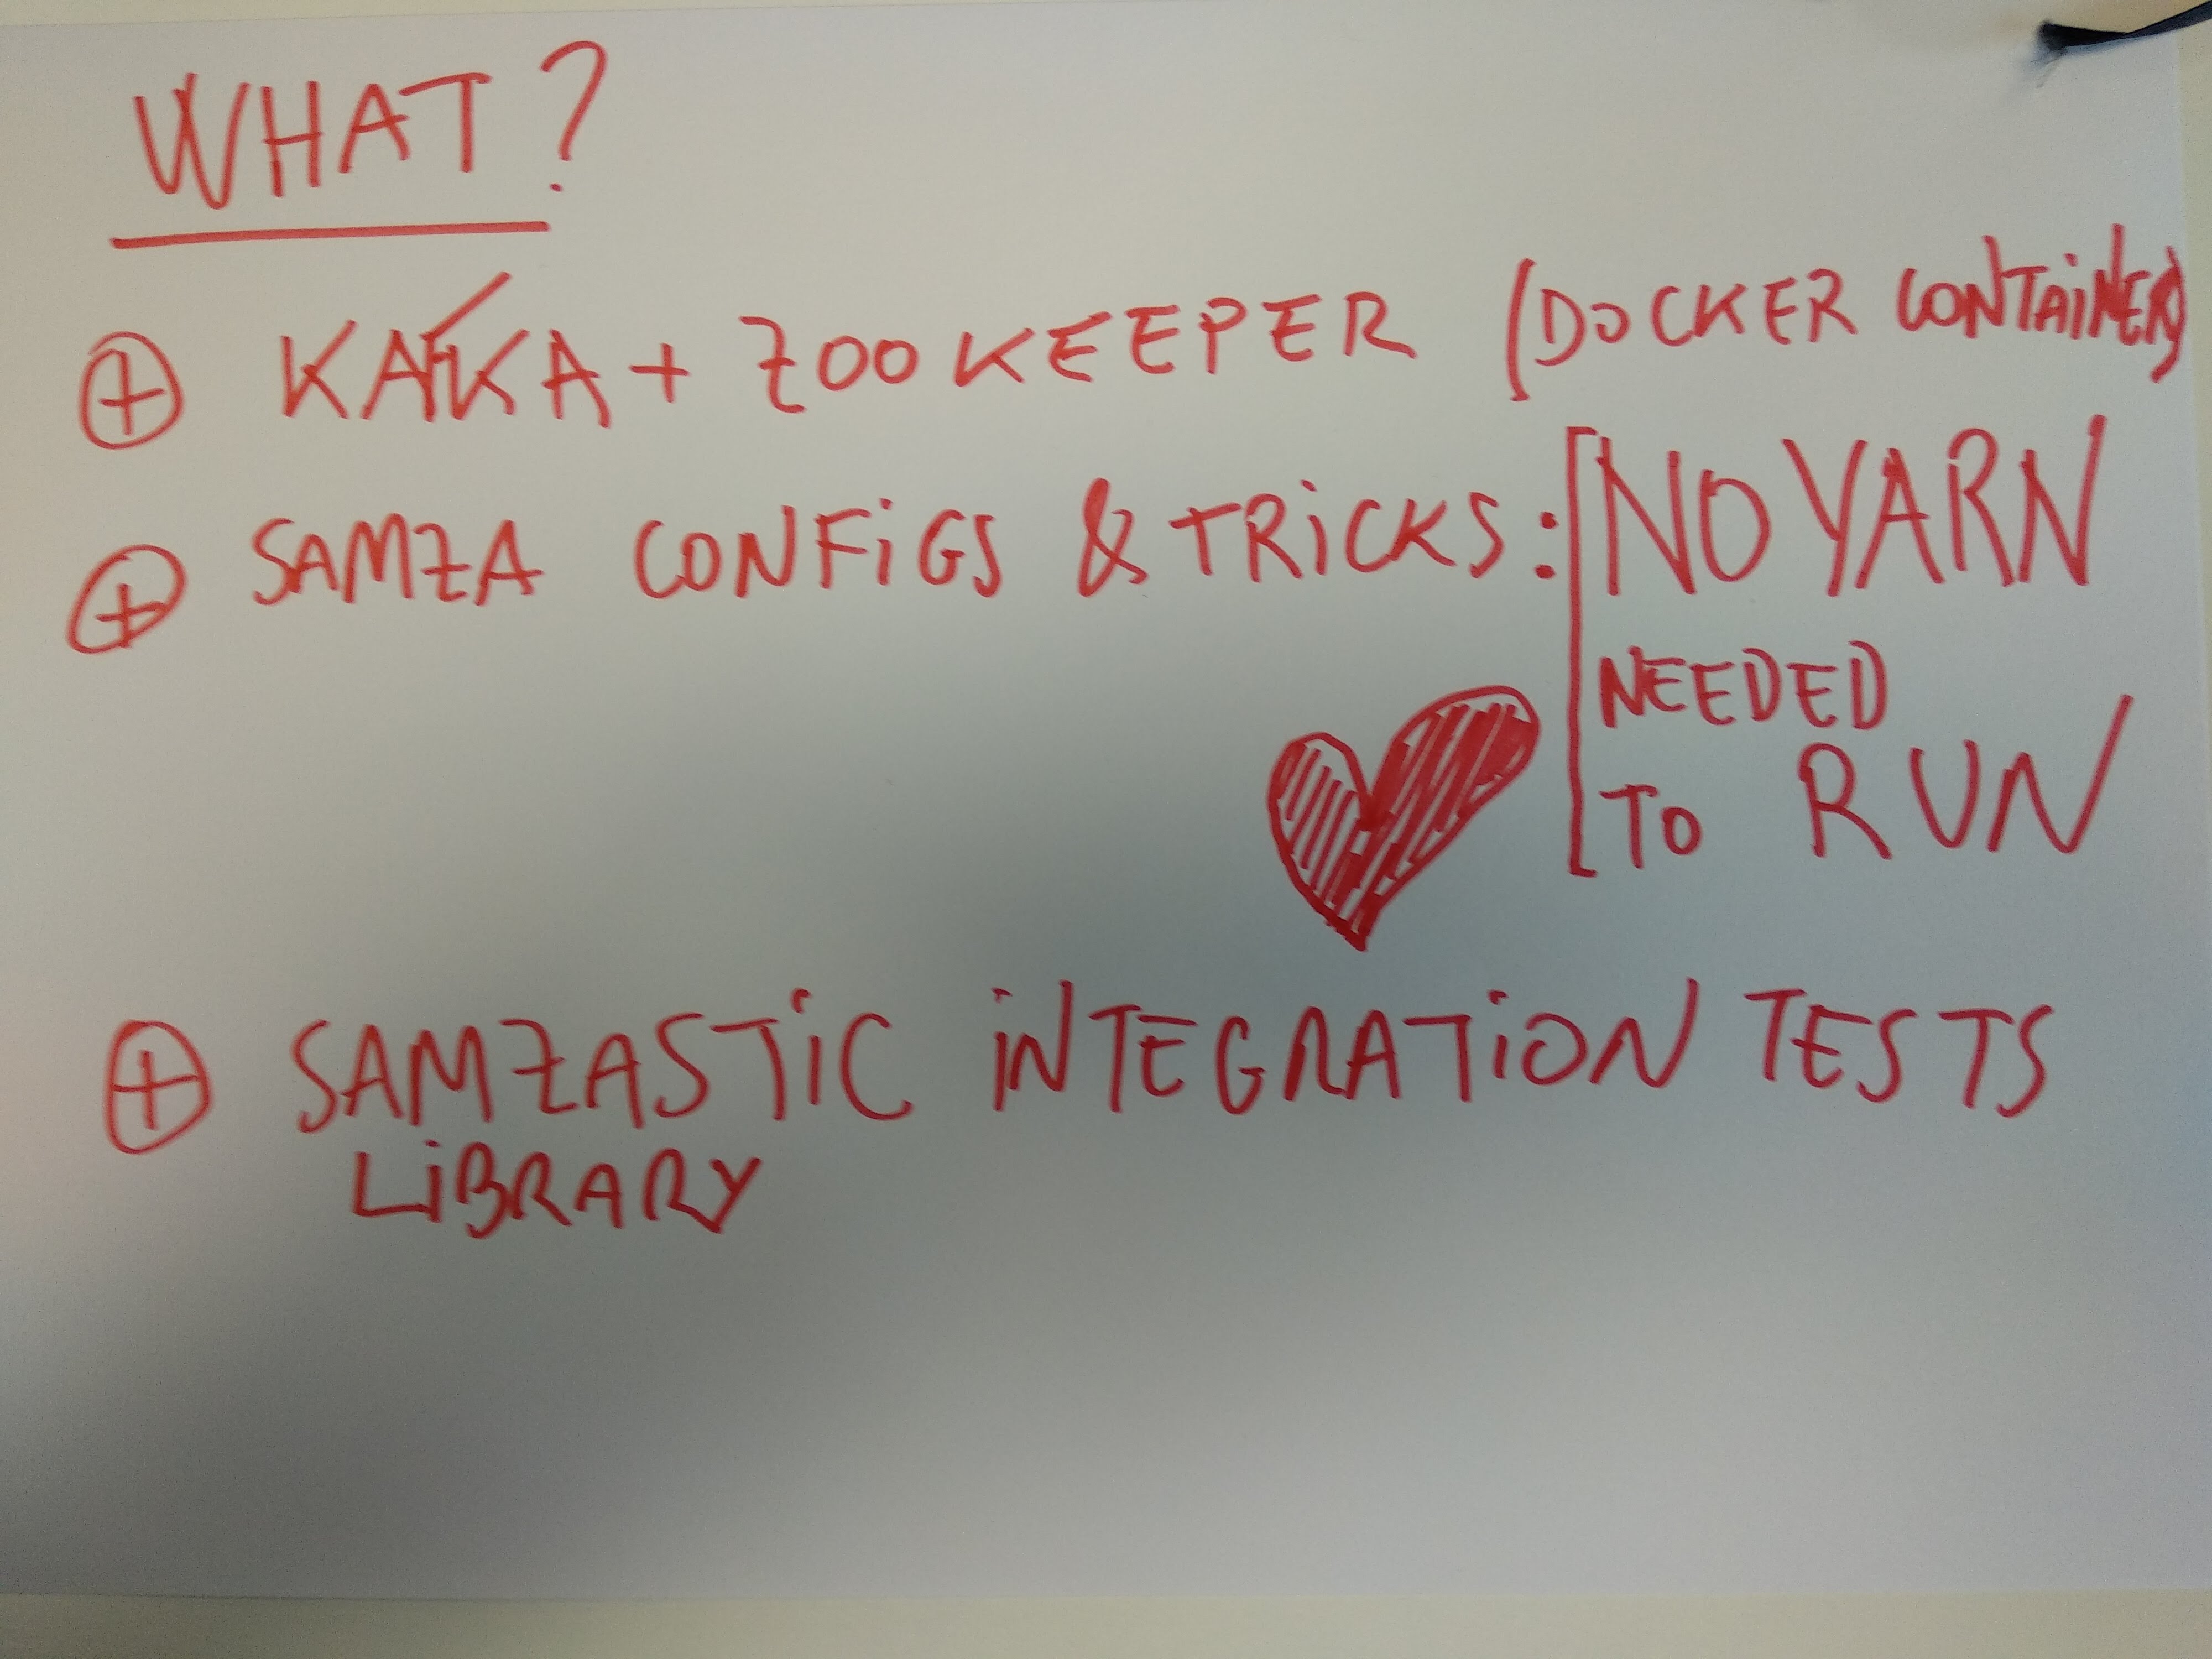 WHAT?
⊕ KAFKA + ZOOKEEPER (DOCKER CONTAINER)
⊕ SAMZA CONFiGS & TRiCKS: [NO YARN
NEEDED
TO RUN
⊕ SAMZASTiC iNTEGRATiON TESTS
LiBRARY